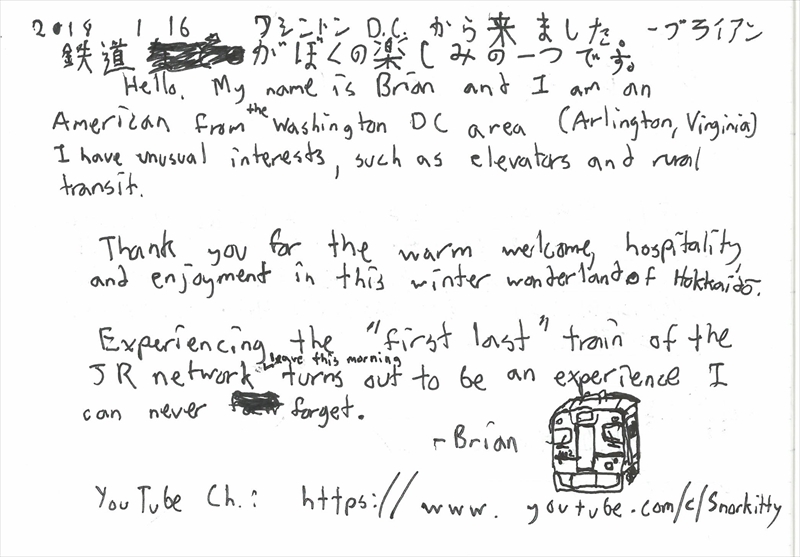 2018 1 16 ワシントンD.C.から来ました。-ブライアン
鉄道 がぼくの楽しみの一つです。
Hello. My name is Brian and I am an
American from the Washington DC area (Arlington, Virginia)
I have unusual interests, such as elevators and rural
transit.
Thank you for the warm welcome, hospitality,
and enjoyment in this winter wonderland of Hokkaidō.
Experiencing the "first last" train of the
JR network leave this morning turns out to be an experience I
can never forget.
-Brian
YouTube Ch.: https://www.youtube.com/c/Snorkitty